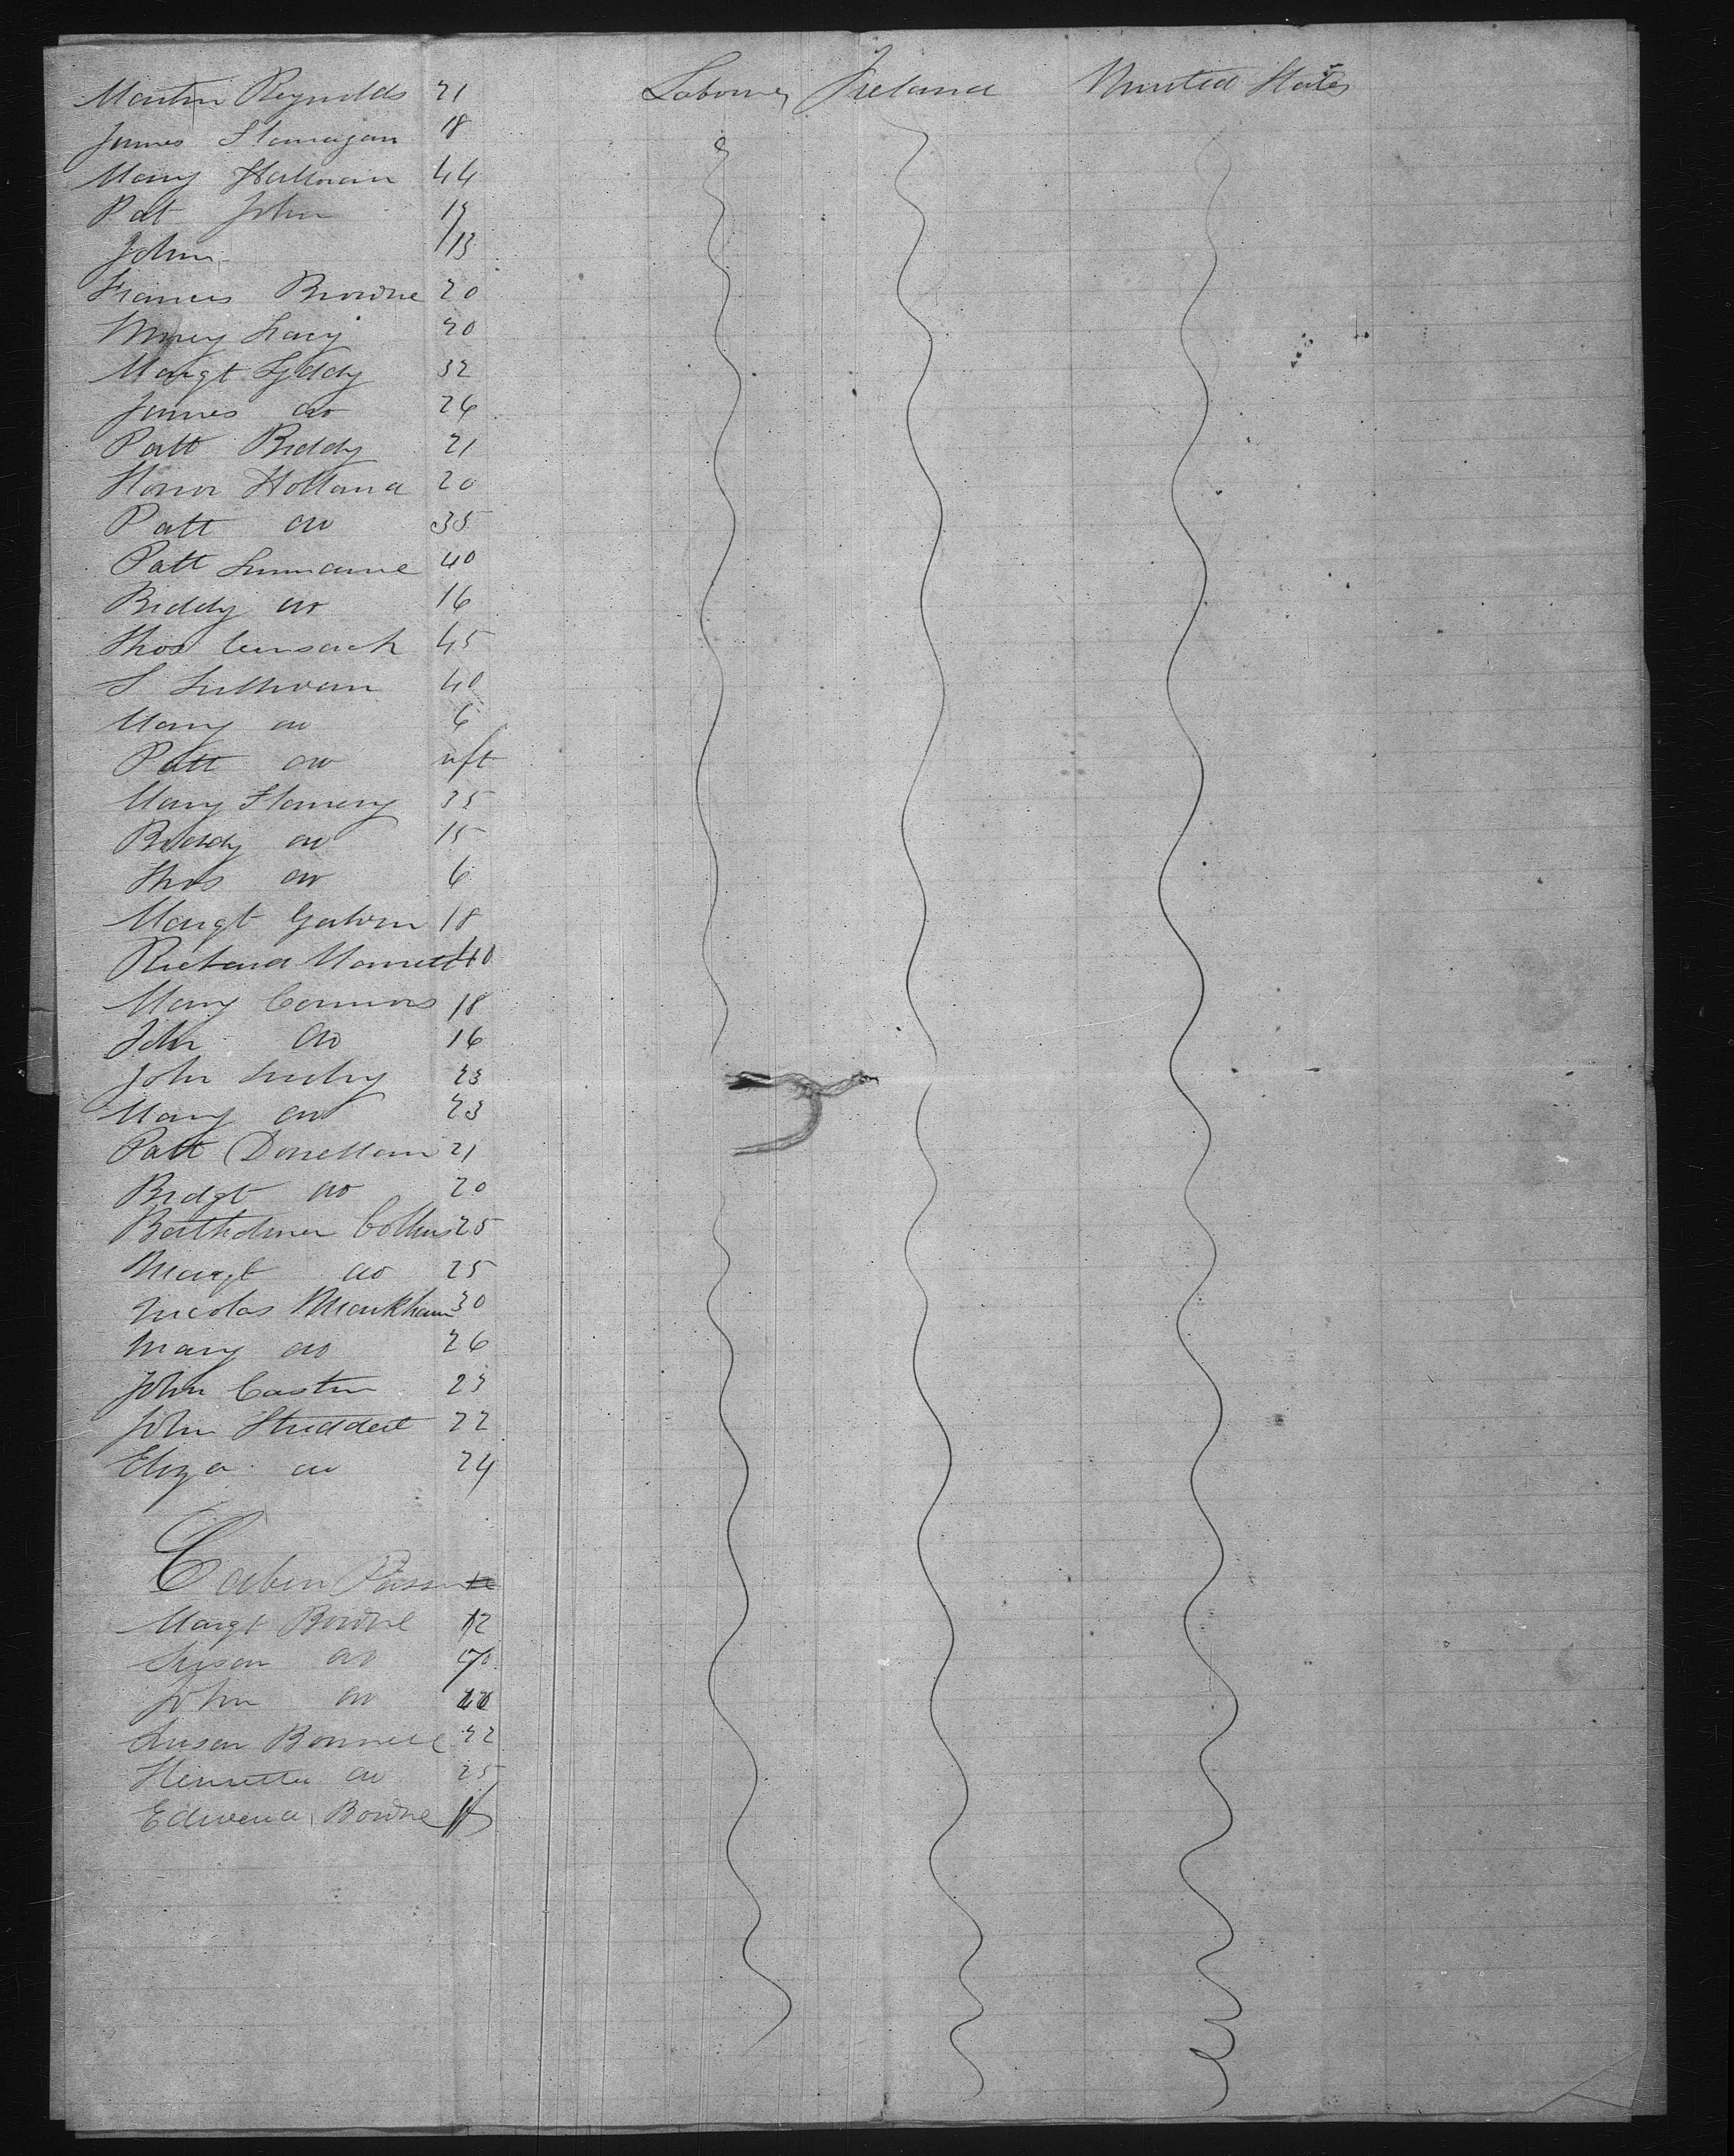 Martin Reynolds 21 Labourer Ireland United States
James Flanagan 18
Mary Halloran 44
Pat John 19
John 13
Francis Browne 20
Lacy 20
Margt Lyddy 32
James do 26
Patt Biddy 21
Honor Holland 20
Patt do 35
Patt 40
Biddy do 16
Thos Cusack 45
S Sullivan 40
Mary do 6
Patt do inft
Mary Flannery 35
Biddy do 15
Thos do 6
Margt Galvin 18
Richard 40
Mary Connors 18
John do 16
John 23
Mary do 23
Patt Donellan 21
Bridgt do 20
Bartholmew Collins 25
Margt do 25
Nicolas Markham 30
Mary do 26
John Costin 23
John Studdert 22
Eliza do 24
Cabin
Margt Bowne 12
Susan do
John do
Susan 22
Henrietta do 25
Edward Bowne